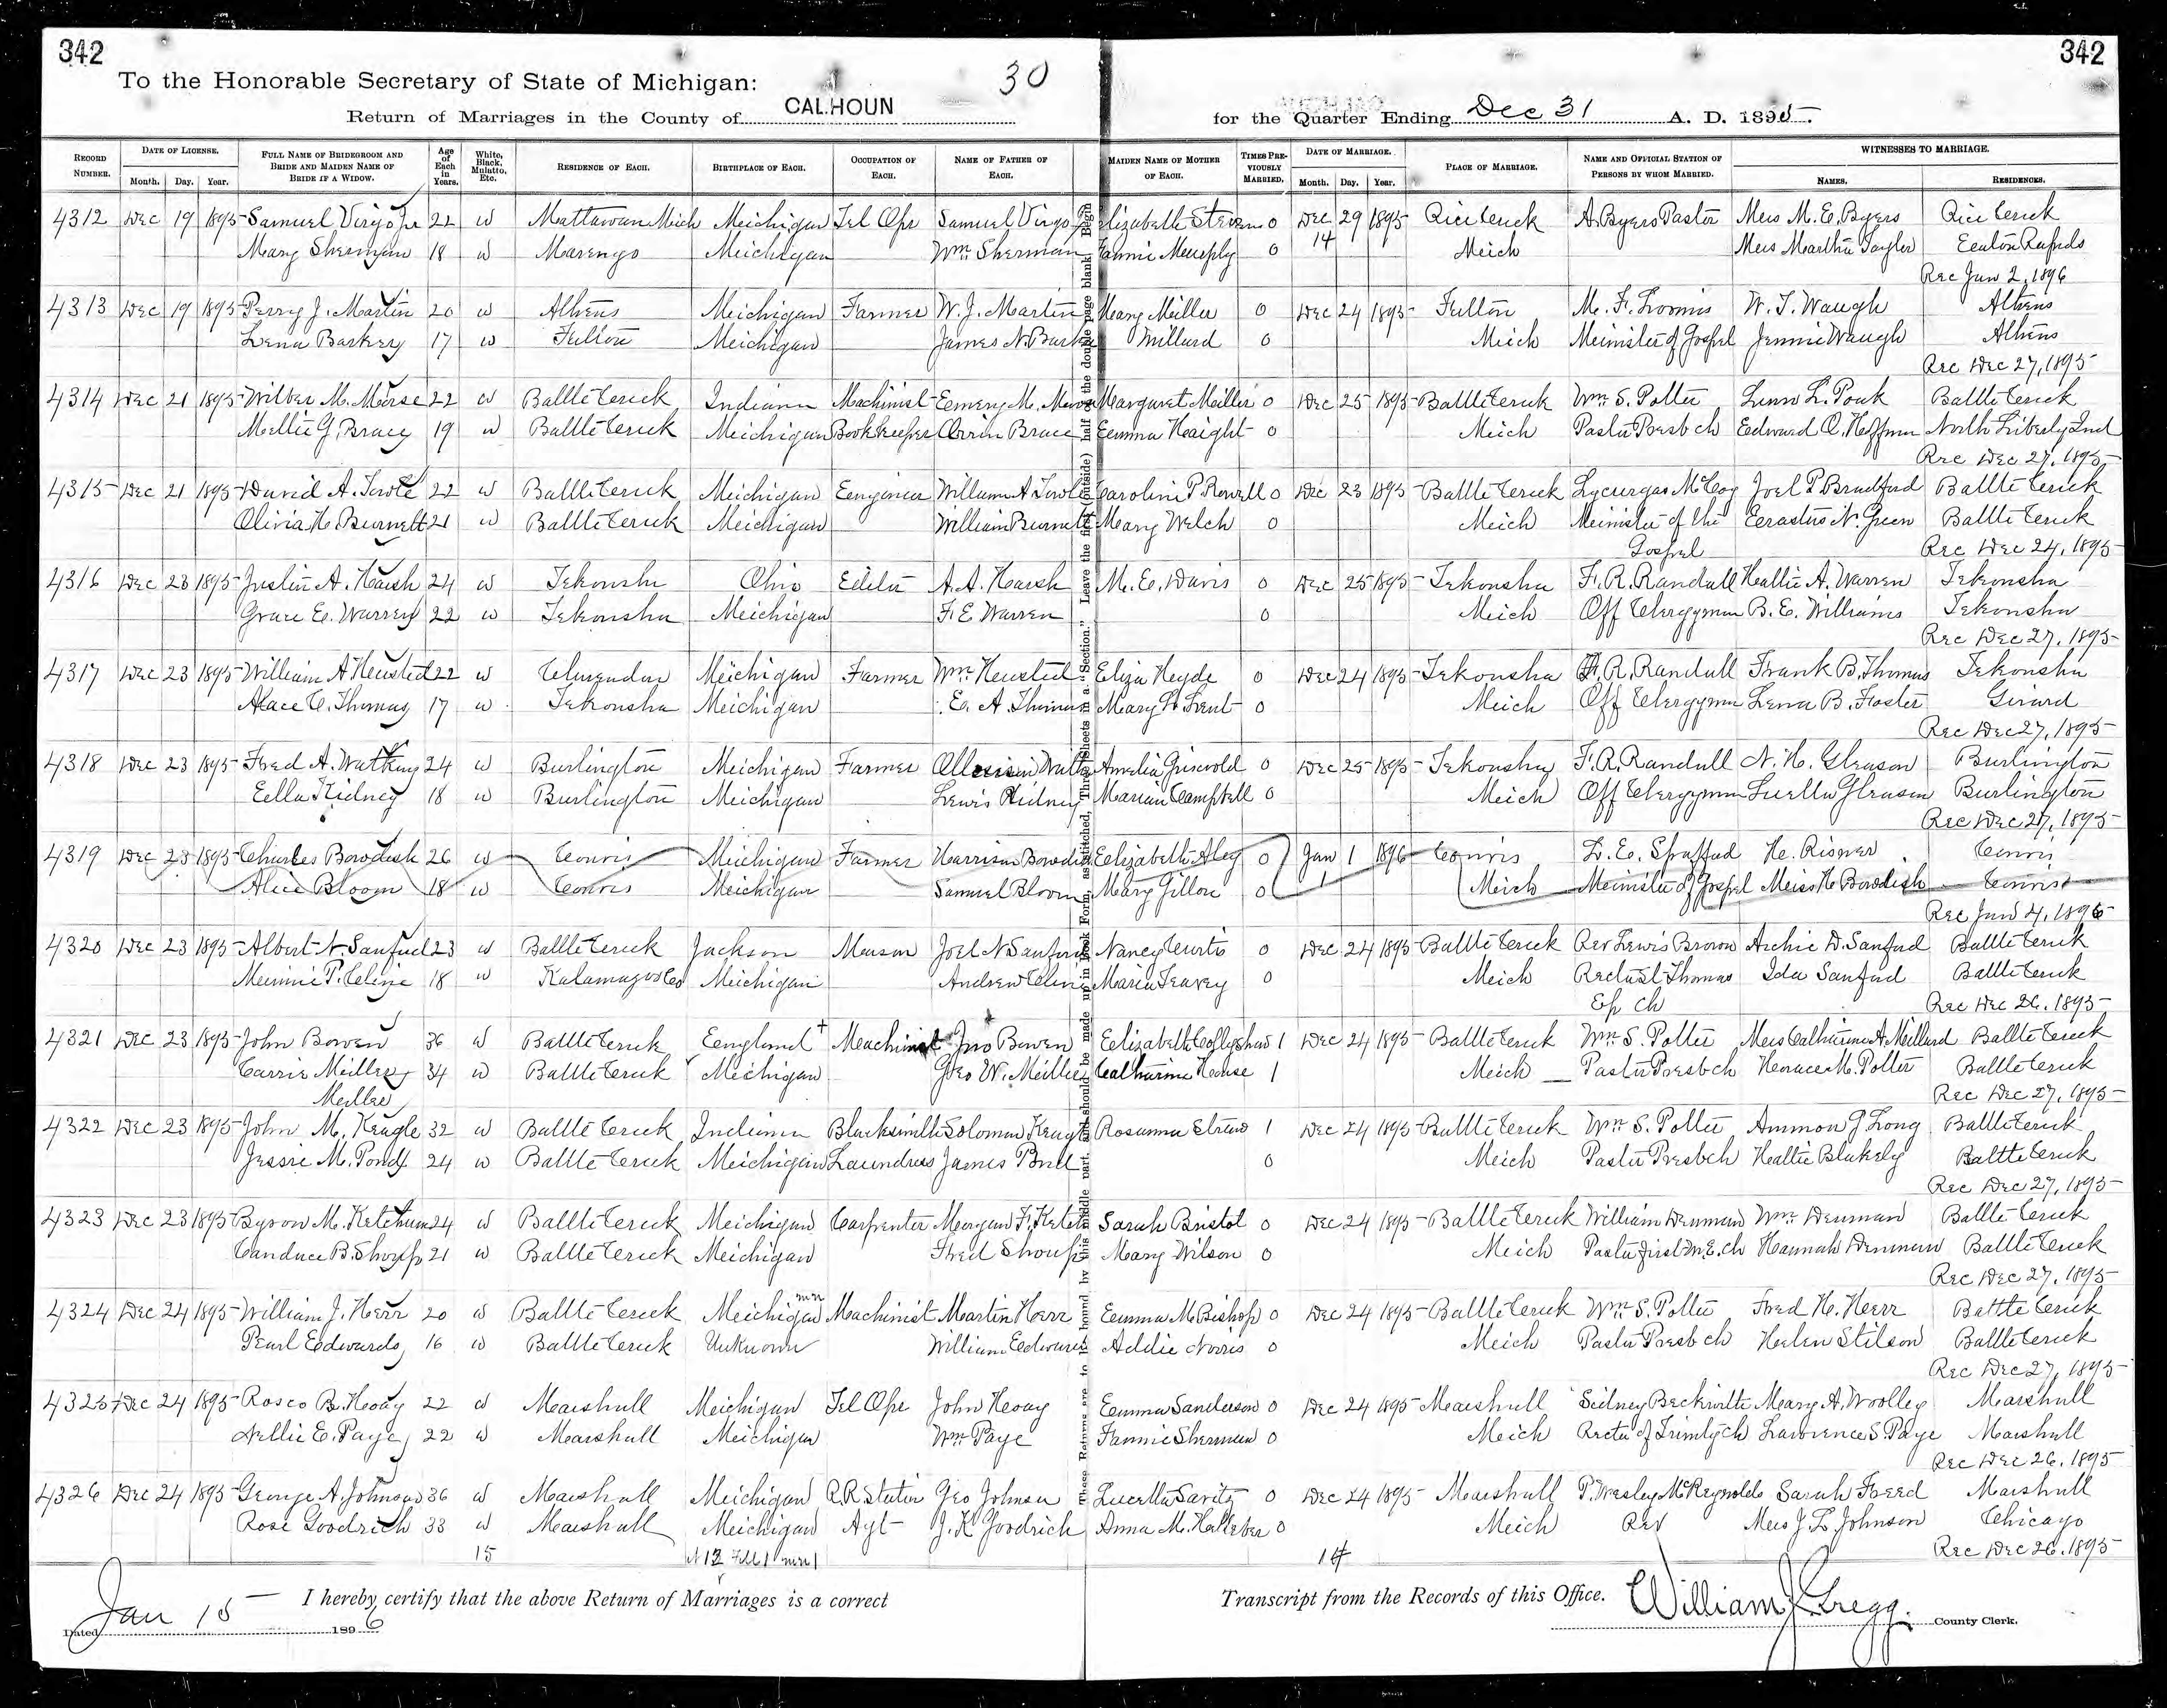 342
342
To the Honorable Secretary of State of Michigan:
30
Return of Marriages in the County of CALHOUN for the Quarter Ending Dec 31 A. D. 1895.
RECORD NUMBER. DATE OF LICENSE. Month. Day. Year. FULL NAME OF BRIDEGROOM AND BRIDE AND MAIDEN NAME OF BRIDE IF A WIDOW. Age of Each in Years. White, Black, Mulatto, Etc. RESIDENCE OF EACH. BIRTHPLACE OF EACH. OCCUPATION OF EACH. NAME OF FATHER OF EACH. MAIDEN NAME OF MOTHER OF EACH. TIMES PREVIOUSLY MARRIED. DATE OF MARRIAGE. Month. Day. Year. PLACE OF MARRIAGE. NAME AND OFFICIAL STATION OF PERSONS BY WHOM MARRIED. WITNESSES TO MARRIAGE. NAMES. RESIDENCES.
4312 Dec 19 1895 Samuel Virgo Jr 22 W Mattawan Mich Michigan Tel Opr Samuel Virgo Elizabeth Steven 0 Dec 29 1895 Rice Creek A. Byers Pastor Mrs M. E. Byers Rice Creek
Mary Sherman 18 W Marengo Michigan Wm Sherman Fannie 0 14 Mich Mrs Martha Taylor Eaton Rapids
Rec Jan 2, 1896
4313 Dec 19 1895 Perry J. Martin 20 W Athens Michigan Farmer W. J. Martin Mary Miller 0 Dec 24 1895 Fulton M. F. Loomis W. T. Waugh Athens
Lena Barkey 17 W Fulton Michigan James N. Millard 0 Mich Minister of Gospel Jennie Waugh Athens
Rec Dec 27, 1895
4314 Dec 21 1895 Wilber M. Morse 22 W Battle Creek Indiana Machinist Emery M. Morse Margaret Miller 0 Dec 25 1895 Battle Creek Wm S. Potter Battle Creek
G. Brace 19 W Battle Creek Michigan Bookkeeper Orrin Brace Emma Haight 0 Mich Pastor Presb ch Edward C. Hoffman North Liberty Ind
Rec Dec 27, 1895
4315 Dec 21 1895 David A. Towle 22 W Battle Creek Michigan Engineer William A Towle Caroline P. Rowell 0 Dec 23 1895 Battle Creek Lycurgas McCoy Joel P. Bradford Battle Creek
Olivia H. Burnett 21 W Battle Creek Michigan William Burnett Mary Welch 0 Mich Minister of the Erastus N. Green Battle Creek
Gospel Rec Dec 24, 1895
4316 Dec 23 1895 Justin A. Harsh 24 W Tekonsha Ohio Editor A. A. Harsh M. E. Davis 0 Dec 25 1895 Tekonsha F. R. Randall Hattie A. Warren Tekonsha
Grace E. Warren 22 W Tekonsha Michigan F. E Warren 0 Mich Off Clergyman B. E. Williams Tekonsha
Rec Dec 27, 1895
4317 Dec 23 1895 William A Heusted 22 W Clarendon Michigan Farmer Wm Heusted Eliza Hyde 0 Dec 24 1895 Tekonsha F. R. Randall Frank B. Thomas Tekonsha
C. Thomas 17 W Tekonsha Michigan E. A Thomas Mary 0 Mich Off Clergyman Lena B. Foster Girard
Rec Dec 27, 1895
4318 Dec 23 1895 Fred A. Watkins 24 W Burlington Michigan Farmer Amelia Griswold 0 Dec 25 1895 Tekonsha F. R. Randall N. H. Gleason Burlington
Ella Kidney 18 W Burlington Michigan Lewis Kidney Marian Campbell 0 Mich Off Clergyman Luella Gleason Burlington
Rec Dec 27, 1895
4319 Dec 23 1895 Charles Bowdish 26 W Convis Michigan Farmer Harrison Bowdish Elizabeth 0 Jan 1 1896 Convis L. E. Spafford H. Risner Convis
Alice Bloom 18 W Convis Michigan Samuel Bloom Mary Gillon 0 1 Mich Minister of Gospel Miss H Bowdish Convis
Rec Jan 4, 1896
4320 Dec 23 1895 Albert N. Sanford 23 W Battle Creek Jackson Mason Joel N Sanford Nancy Curtis 0 Dec 24 1895 Battle Creek Rev Lewis Brown Archie D. Sanford Battle Creek
Minnie P. Cline 18 W Kalamazoo Co Michigan Andrew Cline Maria 0 Mich Rector St Thomas Ida Sanford Battle Creek
Ep ch Rec Dec 26, 1895
4321 Dec 23 1895 John Bowen 36 W Battle Creek England Machinist Jno Bowen Elizabeth 1 Dec 24 1895 Battle Creek Wm S. Potter Mrs Catharine A Millard Battle Creek
Carrie Miller 34 W Battle Creek Michigan Geo W. Miller Catharine House 1 Mich Pastor Presb ch Horace M. Potter Battle Creek
Miller Rec Dec 27, 1895
4322 Dec 23 1895 John M. Keagle 32 W Battle Creek Indiana Blacksmith Solomon Keagle Rosanna 1 Dec 24 1895 Battle Creek Wm S. Potter Ammon G Long Battle Creek
Jessie M. Pond 24 W Battle Creek Michigan Laundress James Pond 0 Mich Pastor Presb ch Hattie Blakely Battle Creek
Rec Dec 27, 1895
4323 Dec 23 1895 Byron M. Ketchum 24 W Battle Creek Michigan Carpenter Morgan F. Ketch Sarah Bristol 0 Dec 24 1895 Battle Creek William Denman Wm Denman Battle Creek
Candace B. Shoup 21 W Battle Creek Michigan Fred Shoup Mary Wilson 0 Mich Pastor first M.E. ch Hannah Denman Battle Creek
Rec Dec 27, 1895
4324 Dec 24 1895 William J. Herr 20 W Battle Creek Michigan Machinist Martin Herr Emma M Bishop 0 Dec 24 1895 Battle Creek Wm S. Potter Fred H. Herr Battle Creek
Pearl Edwards 16 W Battle Creek Unknown William Edwards Addie Norris 0 Mich Pastor Presb ch Helen Stilson Battle Creek
Rec Dec 27, 1895
4325 Dec 24 1895 Rosco B. Hoag 22 W Marshall Michigan Tel Opr John Hoag Emma Sanderson 0 Dec 24 1895 Marshall Sidney Beckwith Mary A. Woolley Marshall
Nellie E. Page 22 W Marshall Michigan Wm Page Fannie Sherman 0 Mich Rector of Trinity Ch Lawrence S. Page Marshall
Rec Dec 26, 1895
4326 Dec 24 1895 George A. Johnson 36 W Marshall Michigan R.R. Station Geo Johnson Lucella Savitz 0 Dec 24 1895 Marshall P. Wesley McReynolds Sarah Freed Marshall
Rose Goodrich 33 W Marshall Michigan Agt J. H. Goodrich Anna M. 0 Mich Rev Mrs J. L. Johnson Chicago
15 14 Rec Dec 26, 1895
Dated Jan 15 1896 I hereby certify that the above Return of Marriages is a correct Transcript from the Records of this Office. William J. Gregg County Clerk.